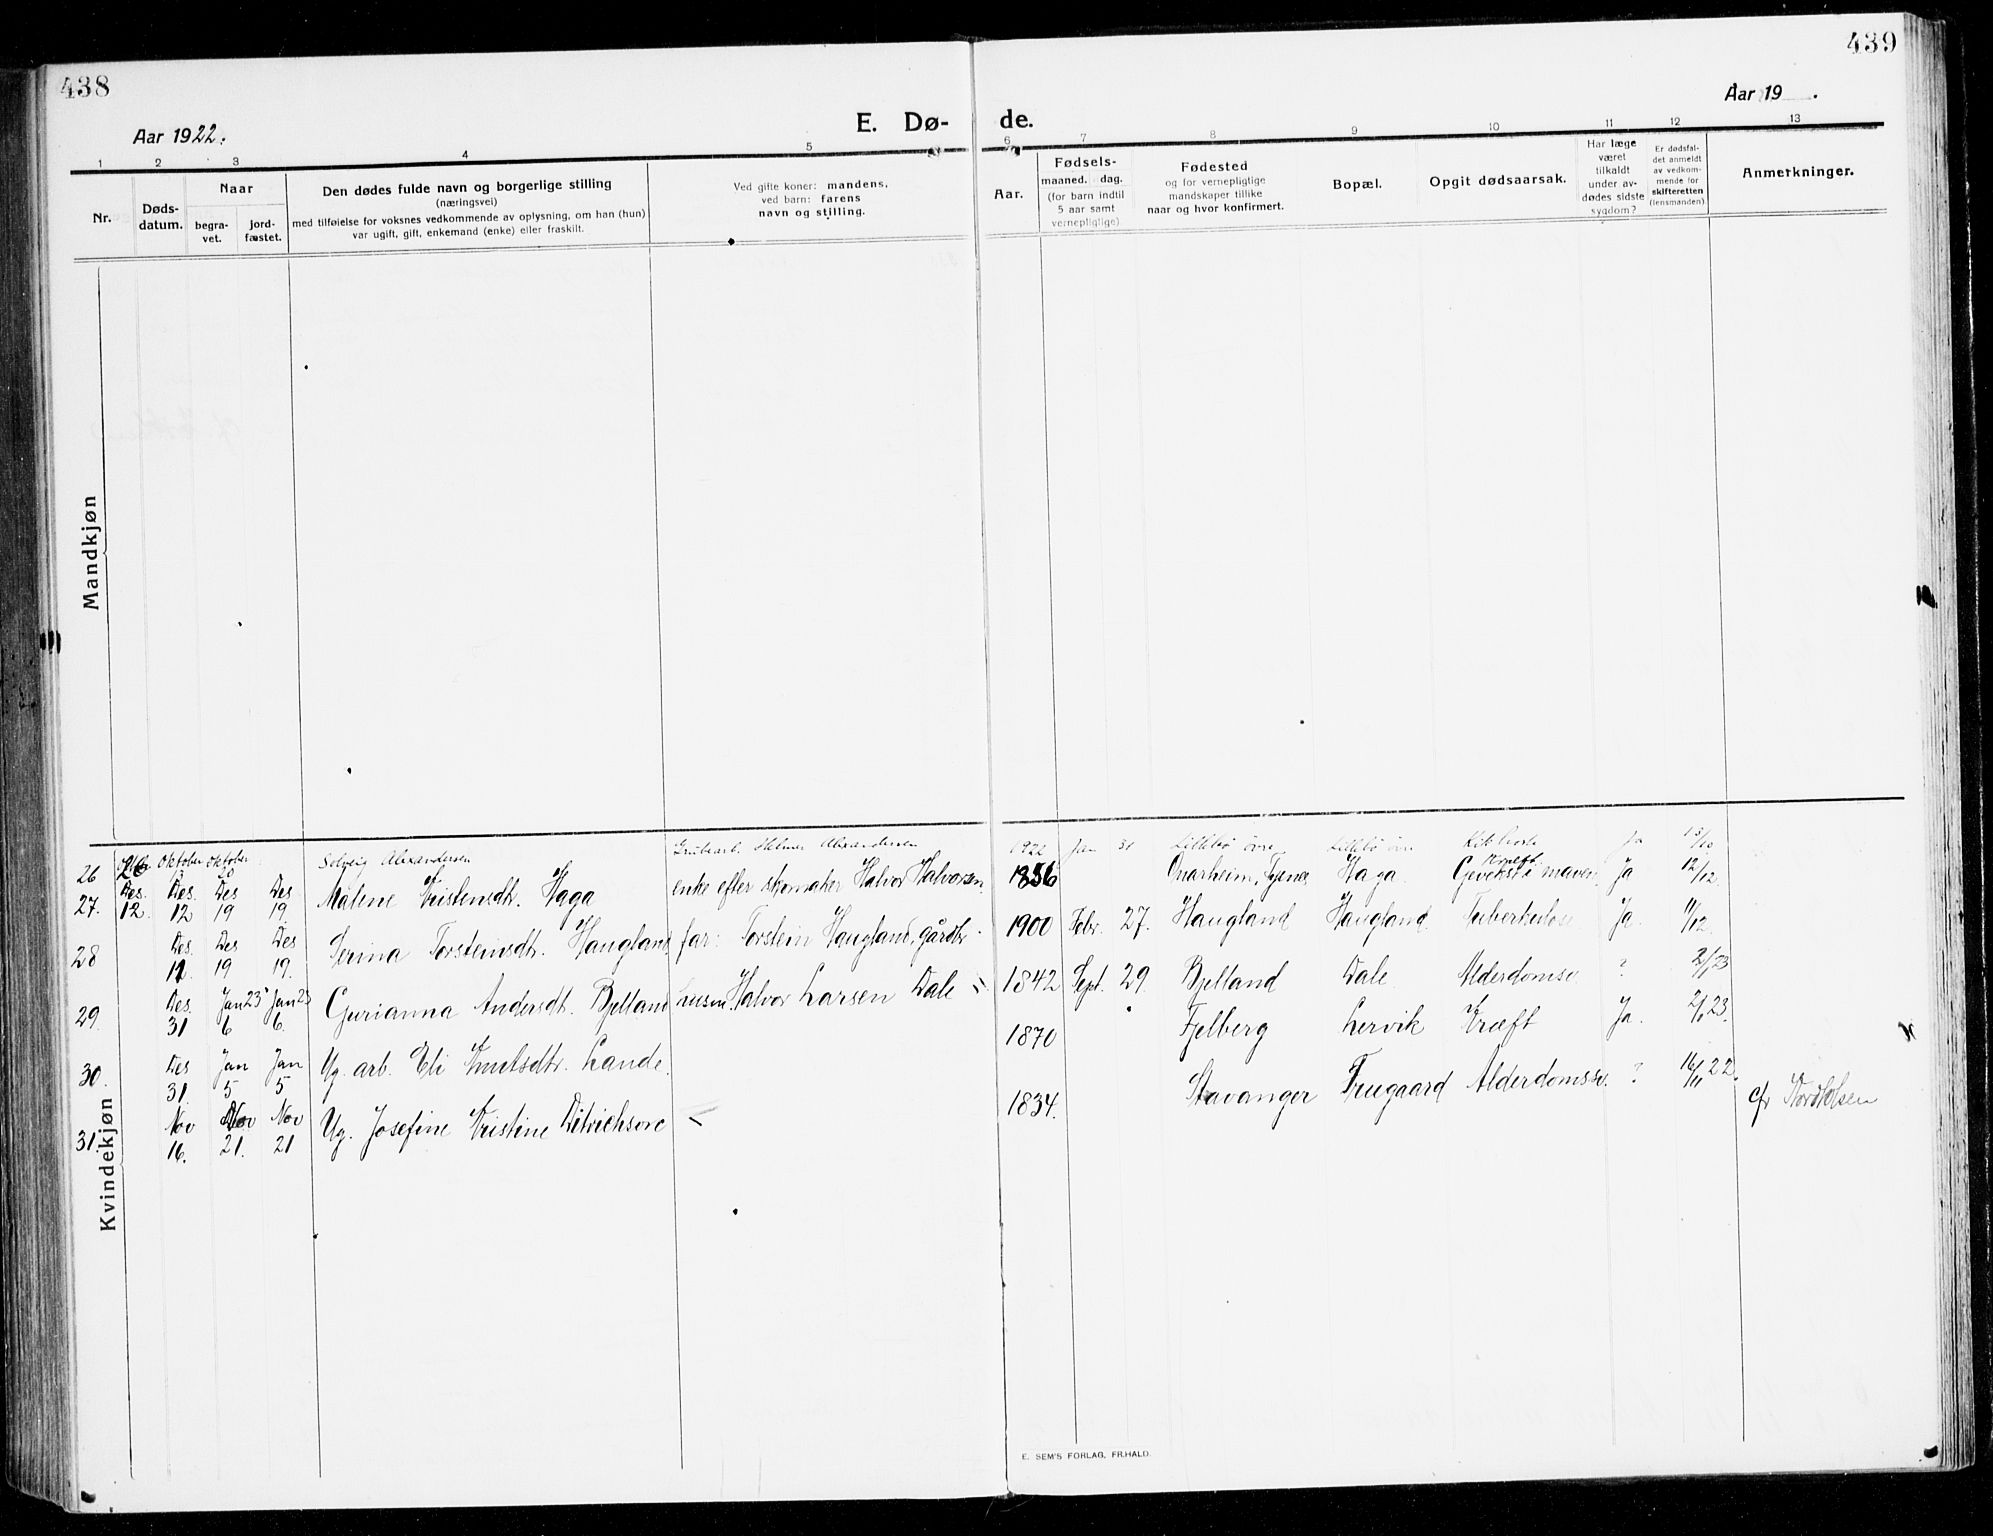 438
439
Aar 1922.
E. Dø-
de.
Aar 19 .
1 2 3 4 5 6 7 8 9 10 11 12 13
Nr.
Døds-
datum.
Naar
begra-
vet.
jord-
fæstet.
Den dødes fulde navn og borgerlige stilling
(næringsvei)
med tilføielse for voksnes vedkommende av oplysning, om han (hun)
var ugift, gift, enkemand (enke) eller fraskilt.
Ved gifte koner: mandens,
ved barn: farens
navn og stilling.
Aar.
Fødsels-
maaned. dag.
(for barn indtil
5 aar samt
vernepligtige)
Fødested
og for vernepligtige
mandskaper tillike
naar og hvor konfirmert.
Bopæl.
Opgit dødsaarsak.
Har læge
været
tilkaldt
under av-
dødes sidste
sygdom?
Er dødsfal-
det anmeldt
av vedkom-
mende for
skifteretten
(lensmanden).
Anmerkninger.
Mandkjøn
26 Oktober 13 Oktober 20 Solveig Alexandersen Grubearb. Helmer Alexandersen 1922 Jan 31 Lillebø øvre Lillebø øvre Kikhoste Ja 13/10
27. Des. 12 Des 19 Des 19. Malene Kristensdtr. Haga enke efter skomaker Halvor Halvorsen 1856 Onarheim, Tysnes Haga Kræft. Gevekst i maven Ja 12/12
28 Des. 12 Des 19 Des 19. Serina Torsteinsdtr. Haugland far: Torstein Haugland, gårdbr. 1900 Febr. 27. Haugland Haugland. Tuberkulose Ja. 11/12.
29. Des. 31 Jan 23 6 Jan 23 6. Gurianna Andersdt. Bjelland husm. Halvor Larsen Dale 1842 Sept. 29. Bjelland Dale Alderdomssv ? 2/1 23
30. Des 31. Jan 5 Jan 5 Ug. arb. Eli Knutsdtr. Lande. 1870 Fjelberg Lervik Kræft Ja. 2/1 23.
31. Nov 16. Nov 21. Nov 21 Ug. Josefine Kristine Ditrichsone 1834. Stavanger Trugaard Alderdomssv. ? 16/11 22. cfr
Kvindekjøn
E. SEM'S FORLAG, FR.HALD.